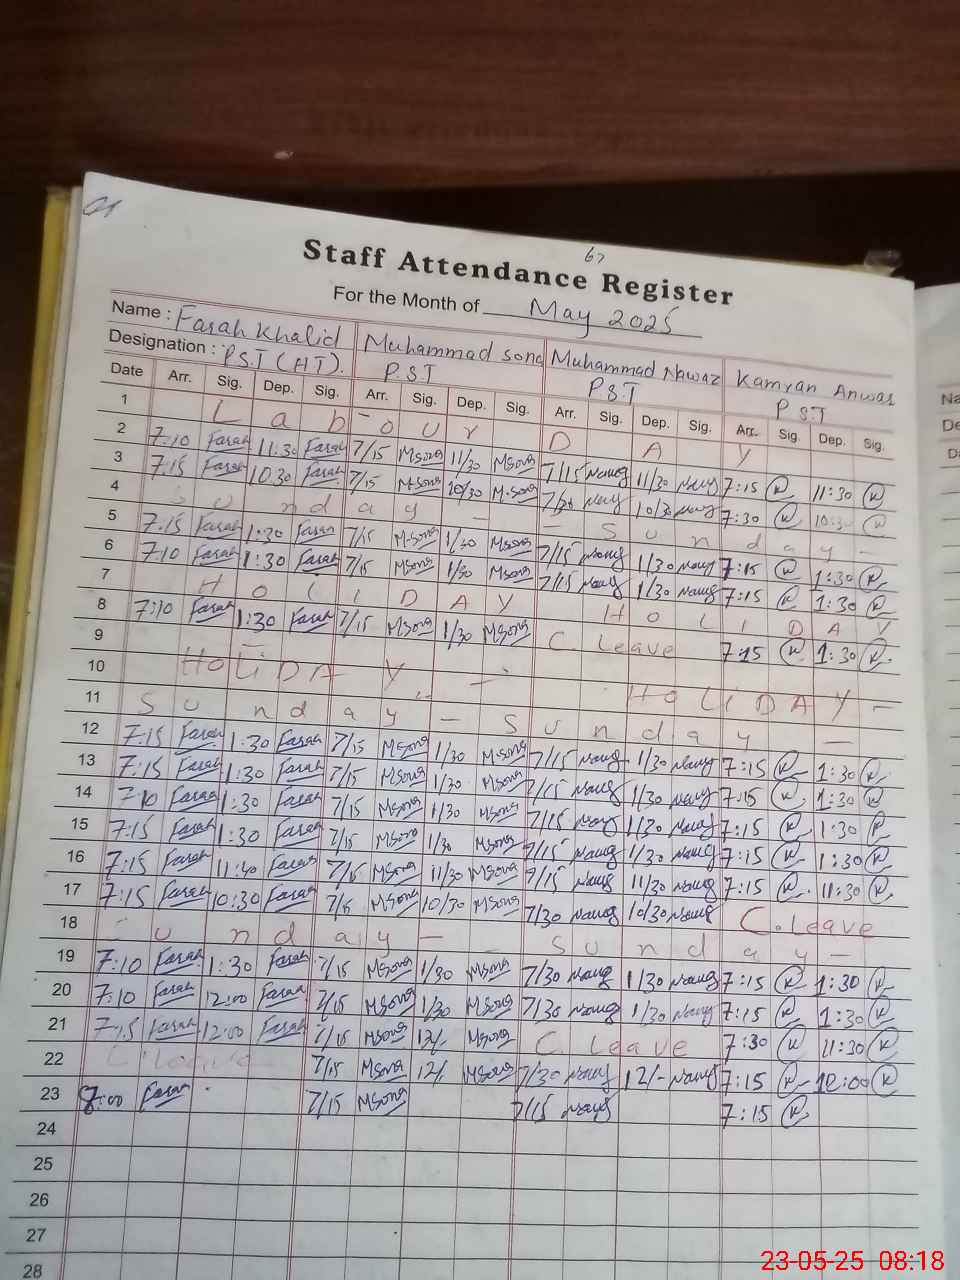 67
Staff Attendance Register
For the Month of May 2025
Name : Farah Khalid Muhammad Song Muhammad Nawaz Kamran Anwar
Designation : P.S.T (HT). P.S.T P.S.T P S.T
Date Arr. Sig. Dep. Sig. Arr. Sig. Dep. Sig. Arr. Sig. Dep. Sig. Arr. Sig. Dep. Sig.
1 Labour DAY
2 7:10 Farah 11:30 Farah 7/15 MSong 11/30 MSong 7/15 Nawaz 11/30 Nawaz 7:15 K 11:30 K
3 7:15 Farah 10.30 Farah 7/15 MSong 10/30 M.Song 7/30 Nawaz 10/30 Nawaz 7:30 K 10:30 K
4 Sunday - - Sunday -
5 7.15 Farah 1:30 Farah 7/15 M.Song 1/30 MSong 7/15 Nawaz 1/30 Nawaz 7:15 K 1:30 K
6 7:10 Farah 1:30 Farah 7/15 MSong 1/30 MSong 7/15 Nawaz 1/30 Nawaz 7:15 K 1:30 K
7 HOLIDAY HOLIDAY
8 7:10 Farah 1:30 Farah 7/15 MSong 1/30 MSong C. Leave 7:15 K 1:30 K
9 HOLIDAY - HOLIDAY -
10
11 Sunday - Sunday -
12 7:15 Farah 1:30 Farah 7/15 MSong 1/30 MSong 7/15 Nawaz 1/30 Nawaz 7:15 K 1:30 K
13 7:15 Farah 1:30 Farah 7/15 MSong 1/30 MSong 7/15 Nawaz 1/30 Nawaz 7:15 K 1:30 K
14 7:10 Farah 1:30 Farah 7/15 MSong 1/30 MSong 7/15 Nawaz 1/30 Nawaz 7:15 K 1:30 K
15 7:15 Farah 1:30 Farah 7/15 MSong 1/30 MSong 7/15 Nawaz 1/30 Nawaz 7:15 K 1:30 K
16 7:15 Farah 11:40 Farah 7/15 MSong 11/30 MSong 7/15 Nawaz 11/30 Nawaz 7:15 K 11:30 K
17 7:15 Farah 10:30 Farah 7/15 MSong 10/30 MSong 7/30 Nawaz 10/30 Nawaz C. Leave
18 Sunday - Sunday -
19 7:10 Farah 1:30 Farah 7/15 MSong 1/30 MSong 7/30 Nawaz 1/30 Nawaz 7:15 K 1:30 K
20 7:10 Farah 12:00 Farah 7/15 MSong 1/30 MSong 7/30 Nawaz 1/30 Nawaz 7:15 K 1:30 K
21 7:15 Farah 12:00 Farah 7/15 MSong 12/- MSong C. Leave 7:30 K 11:30 K
22 C. Leave 7/15 MSong 12/- MSong 7/30 Nawaz 12/- Nawaz 7:15 K 12:00 K
23 8:00 Farah 7/15 MSong 7/15 Nawaz 7:15 K
24
25
26
27
28
Na
De
Da
23-05-25 08:18